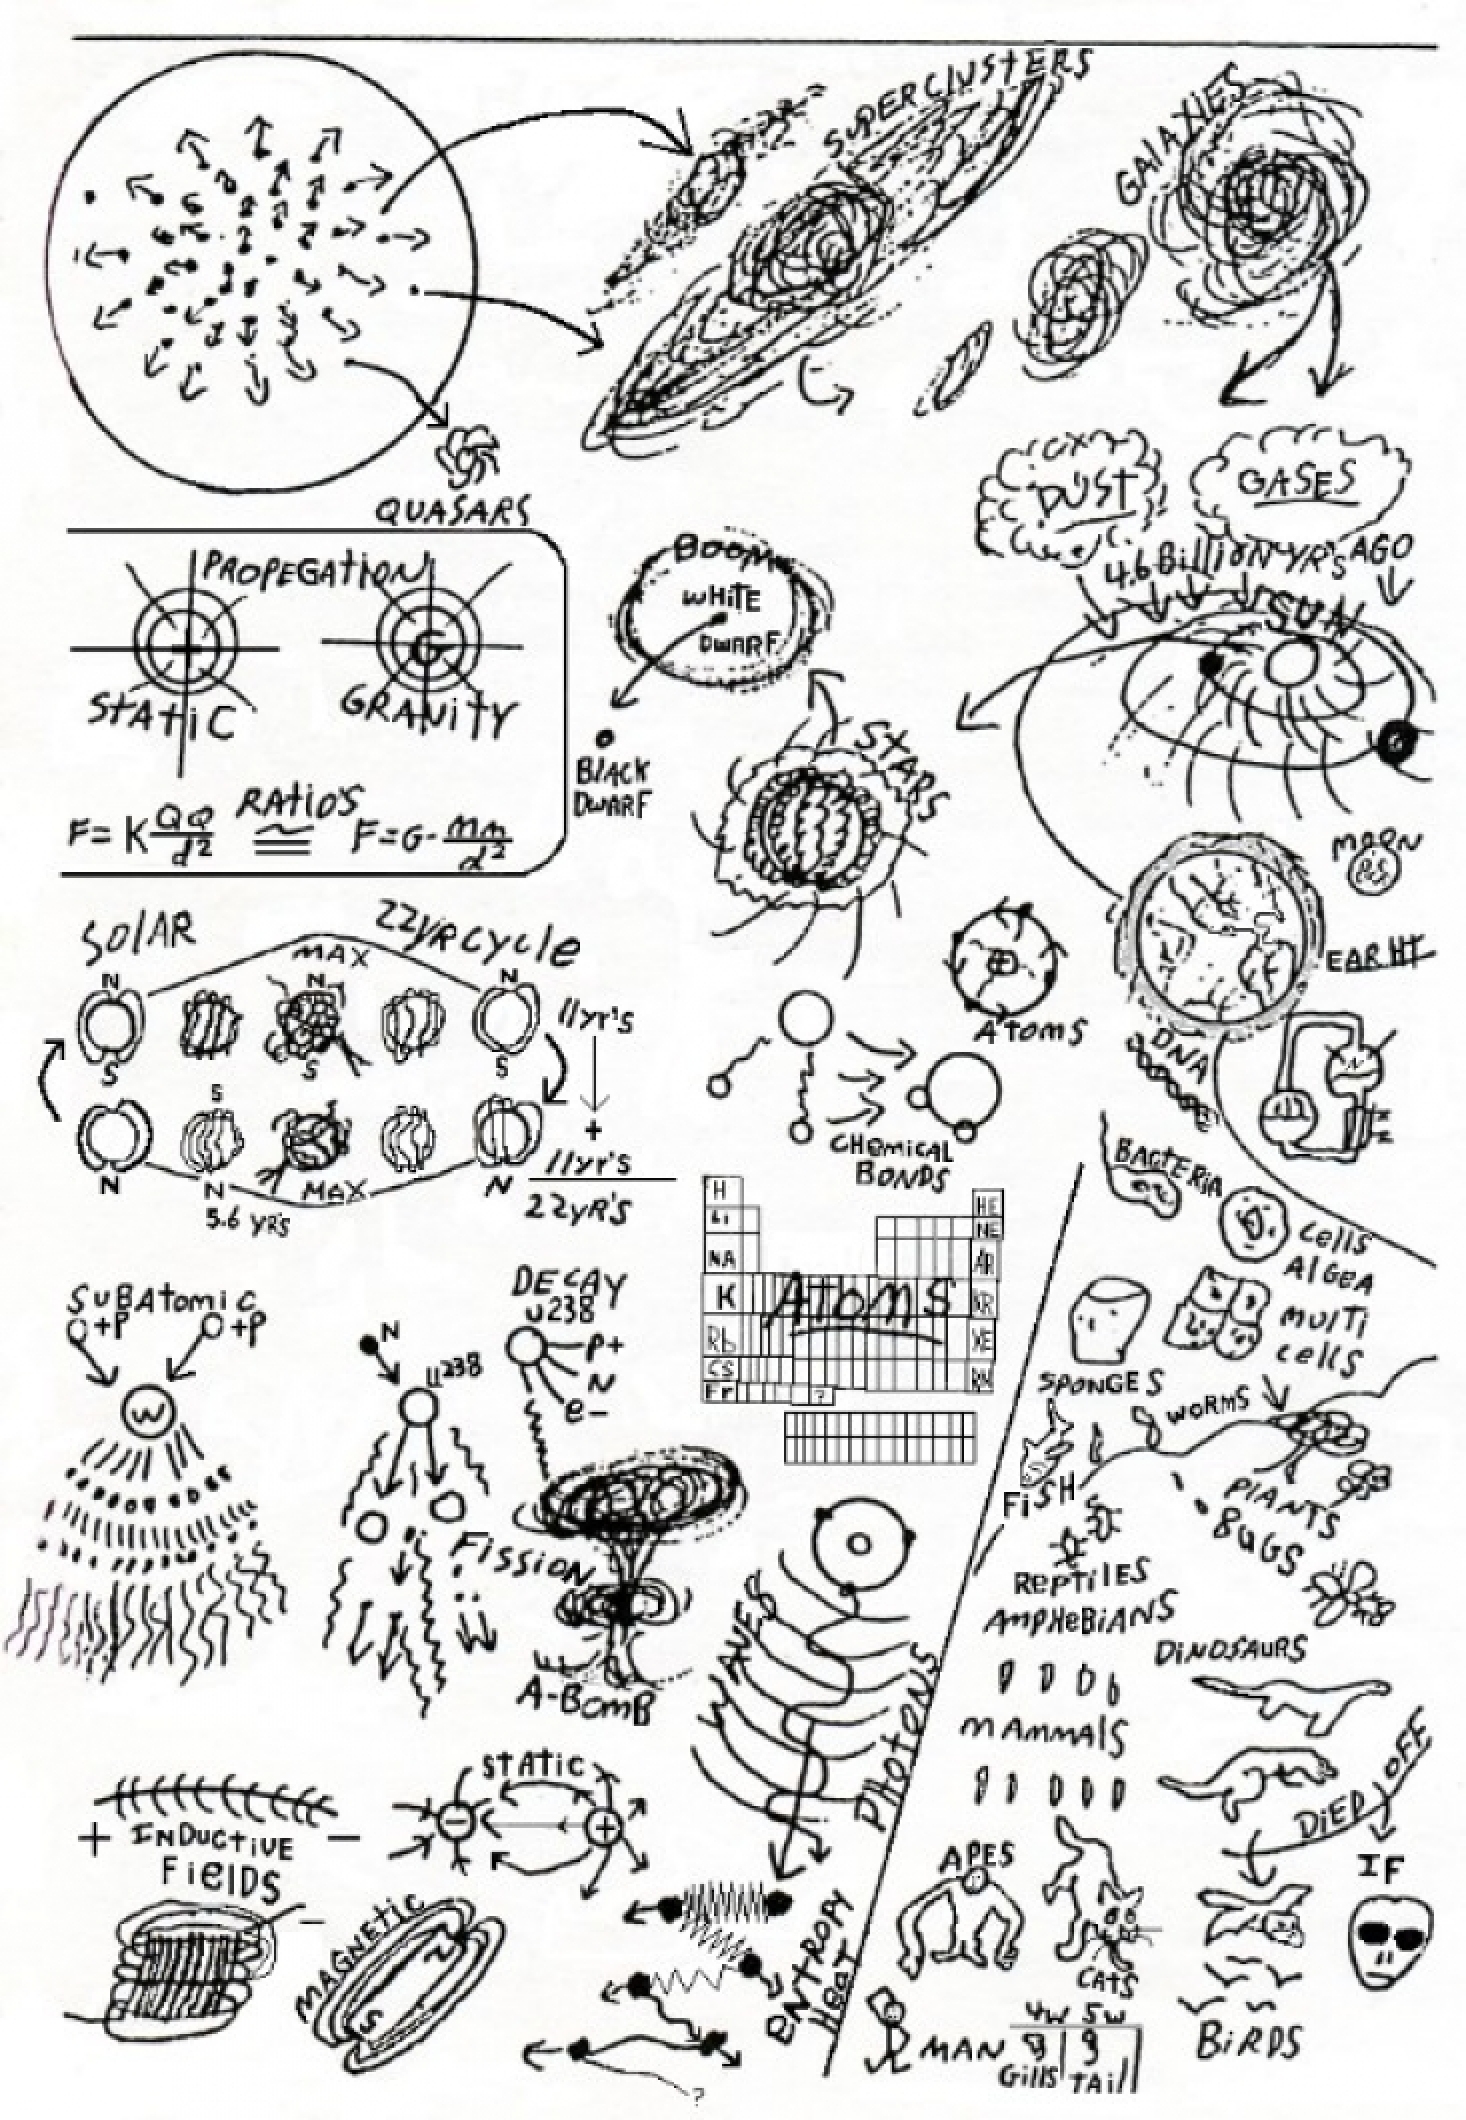 SUPERCLUSTERS
GALAXIES
QUASARS
DUST
GASES
4.6 BilliONYR's AGO
SUN
PROPEGAtiON
+
G
StAtiC
GRAVitY
RAtiO'S
F=K QQ/d2 ≅ F=G- mm/d2
BOOM
WHitE
DWARF
BlACK
DWARF
STARS
MOON
EARHT
SOlAR
22yR cycle
MAX
N
N
N
S
S
S
11yr's
+
11yr's
22yR'S
S
N
N
MAX
N
5.6 YR'S
AtomS
CHEmicAl
BONDS
DNA
BACTERIA
cells
AlgEA
mulTi
cells
SPONGES
WORMS
FiSH
PlANTS
BUGS
REPtiLES
AmPHeBiANS
DiNOSAURS
mAmmAlS
DiED OFF
IF
APES
CATS
BiRDS
MAN
4W 5W
Gills TAil
H
Li
NA
K
Rb
CS
Fr
HE
NE
AR
KR
XE
RN
?
AtomS
SuBAtomic
+P +P
W
N
U238
FiSSiON
DECAY
U238
P+
N
e-
A-BomB
WAVES
PHOtONS
ENtROPY
HEAt
?
StAtiC
-
+
+ INDuctiVE -
FiElDS
-
MAGNEtic
N
S